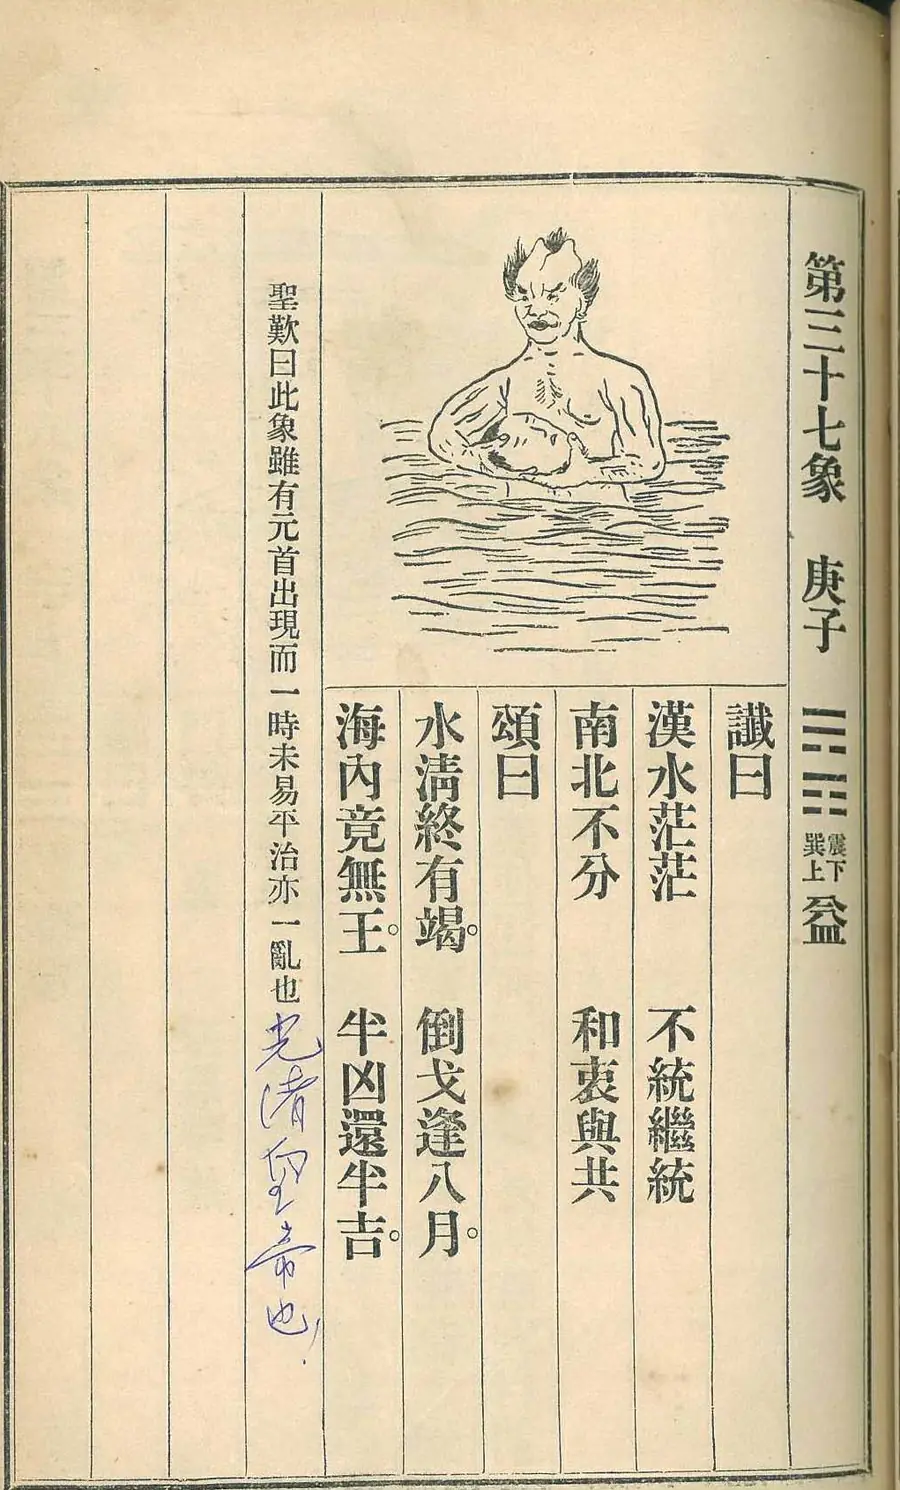 第三十七象　庚子　震下巽上　益
讖曰
漢水茫茫　不統繼統
南北不分　和衷與共
頌曰
水清終有竭。倒戈逢八月。
海內竟無王。半凶還半吉。
聖歎曰此象雖有元首出現而一時未易平治亦一亂也光渚皇帝也